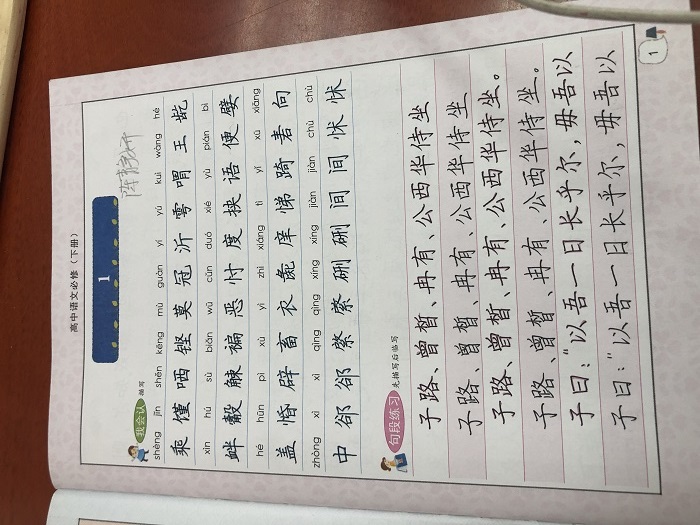 高中语文必修（下册）
1
我会认 描写
shèng jǐn shěn kēng mù guàn yí yú kuì wàng hé
乘 馑 哂 铿 莫 冠 沂 雩 喟 王 龁
xìn hú sù biǎn wū cǔn duó xié yù pián bì
衅 觳 觫 褊 恶 忖 度 挟 语 便 嬖
hé hūn pì xù yì zhì xiáng tì yǐ xū xiàng
盖 惛 辟 畜 衣 彘 庠 悌 踦 砉 向
zhòng xì xì qìng qìng xíng xíng jiàn jiàn chù chù
中 郤 郤 綮 綮 硎 硎 间 间 怵 怵
句段练习 先描写后临写
子路、曾皙、冉有、公西华侍坐
子路、曾皙、冉有、公西华侍坐
子路、曾皙、冉有、公西华侍坐。
子路、曾皙、冉有、公西华侍坐。
子曰：“以吾一日长乎尔，毋吾以
子曰：“以吾一日长乎尔，毋吾以
1